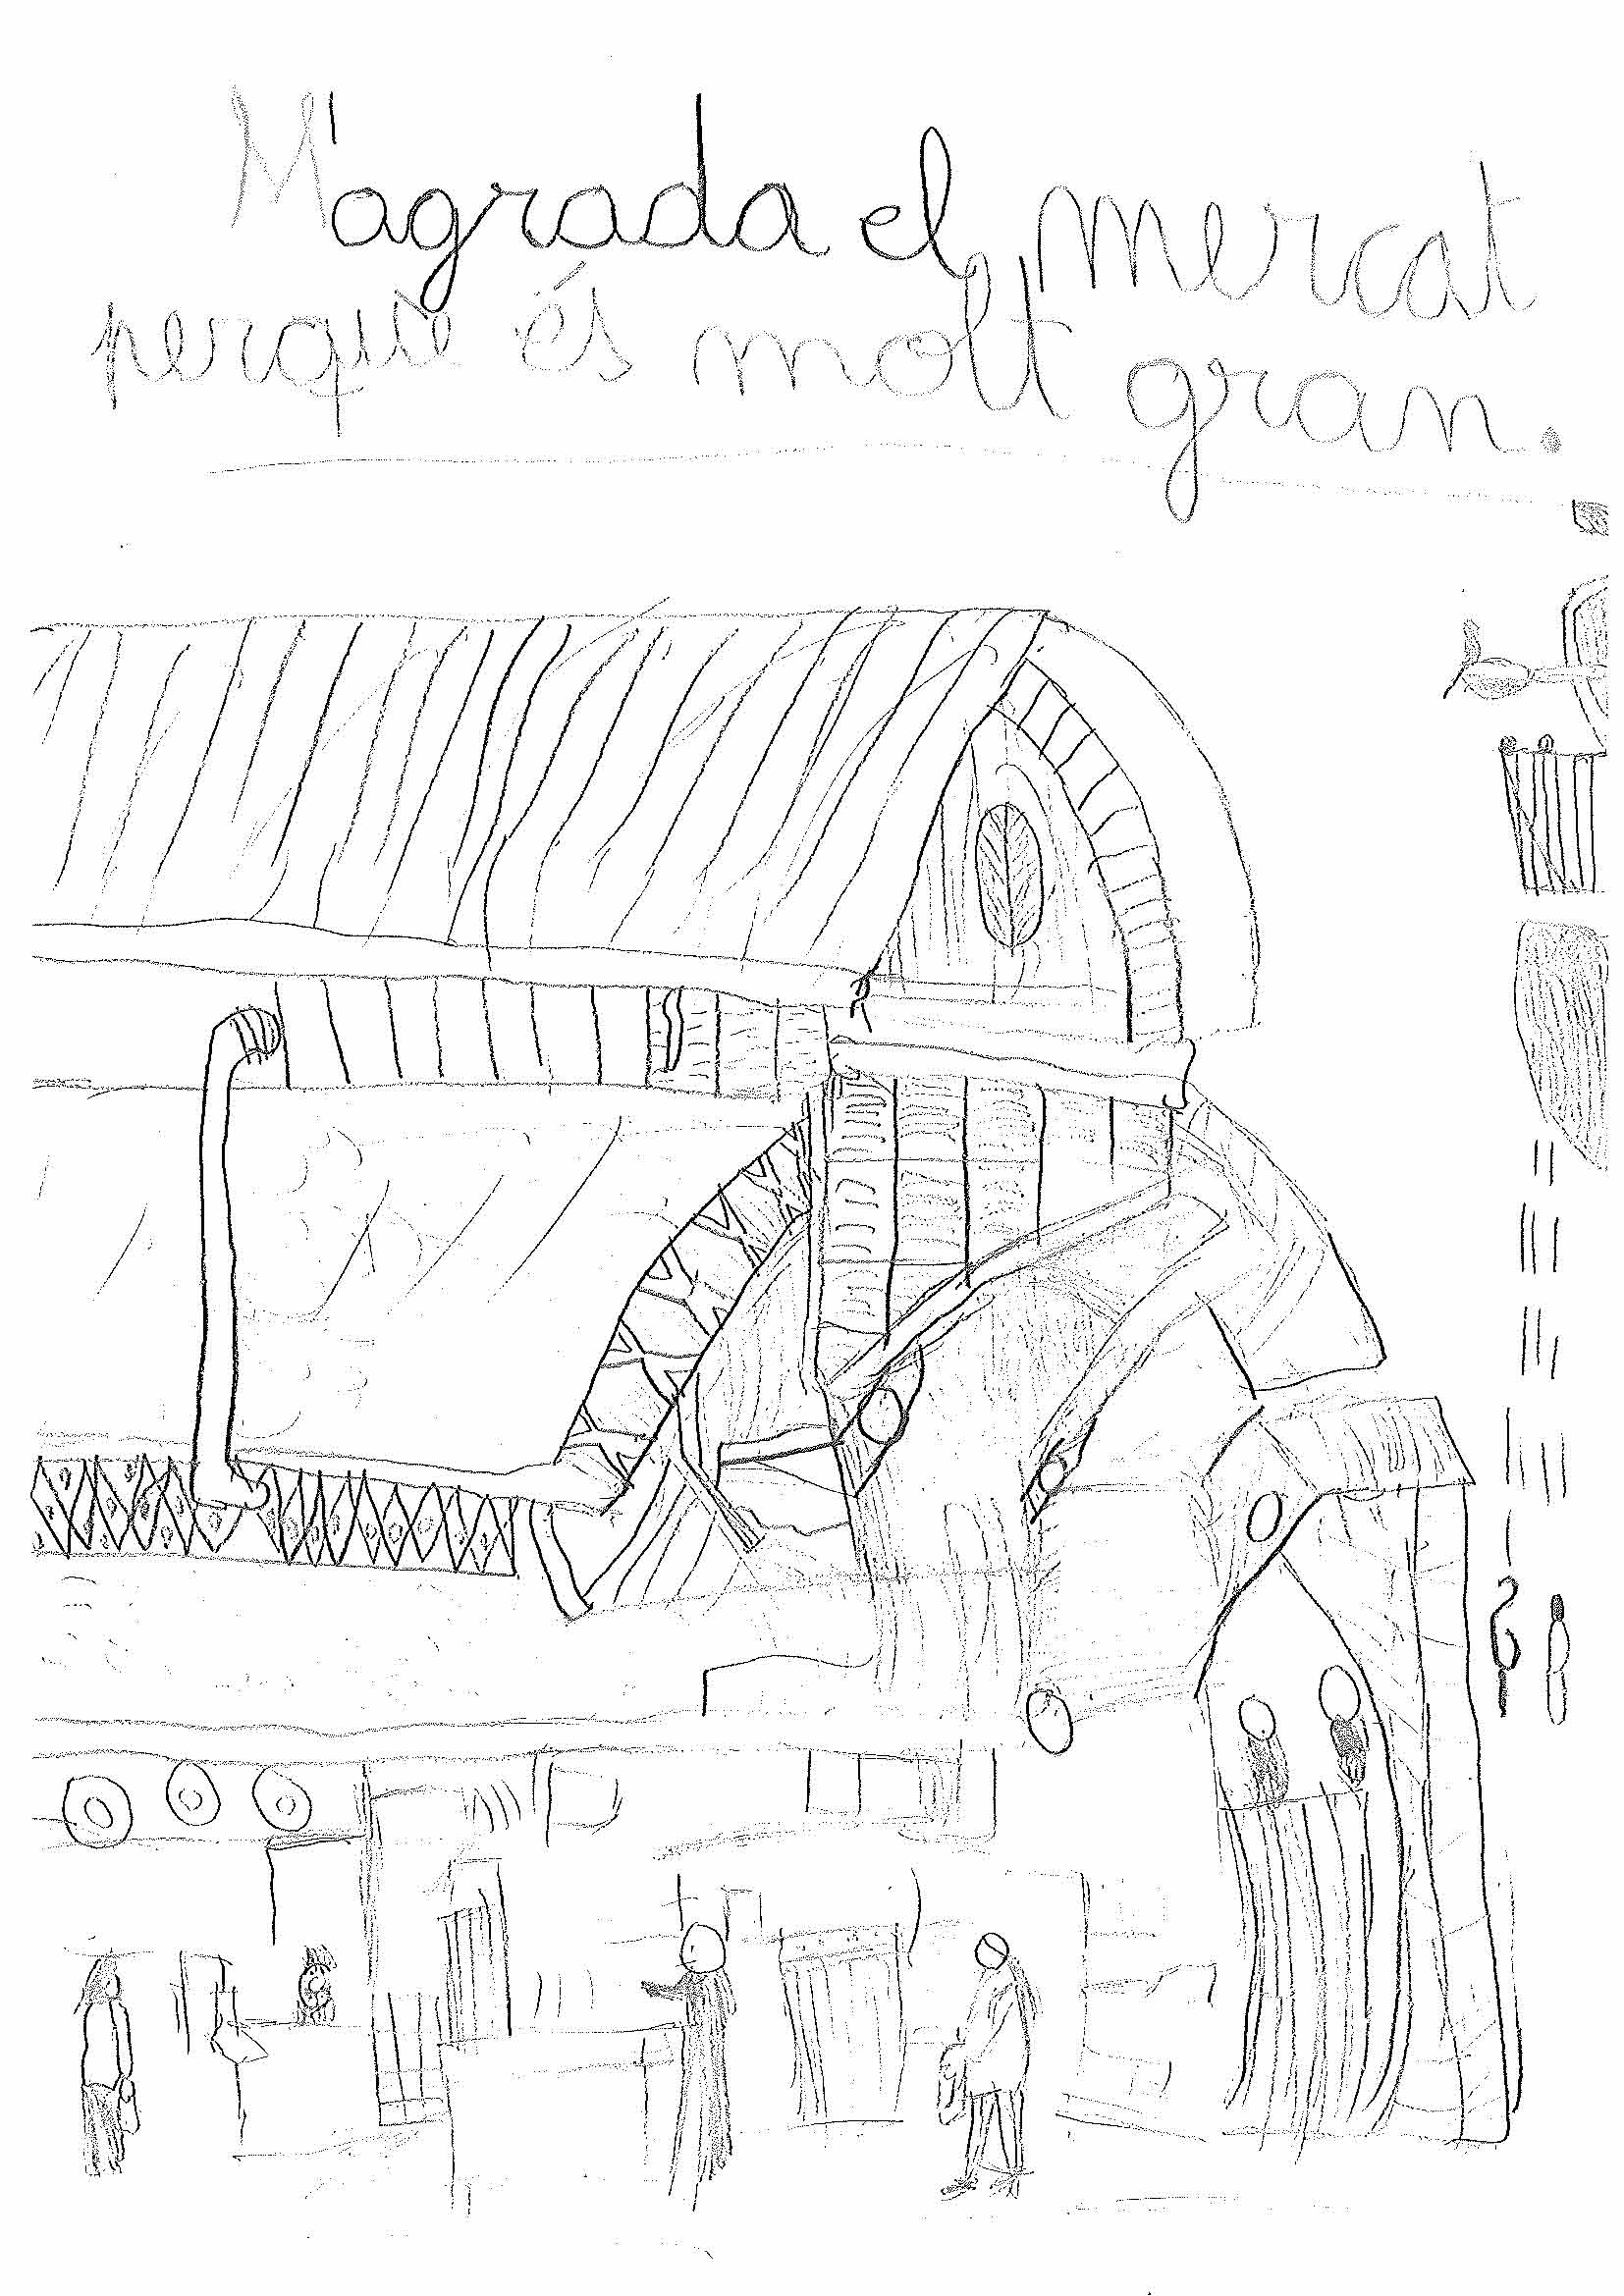 M'agrada el mercat
perquè és molt gran.